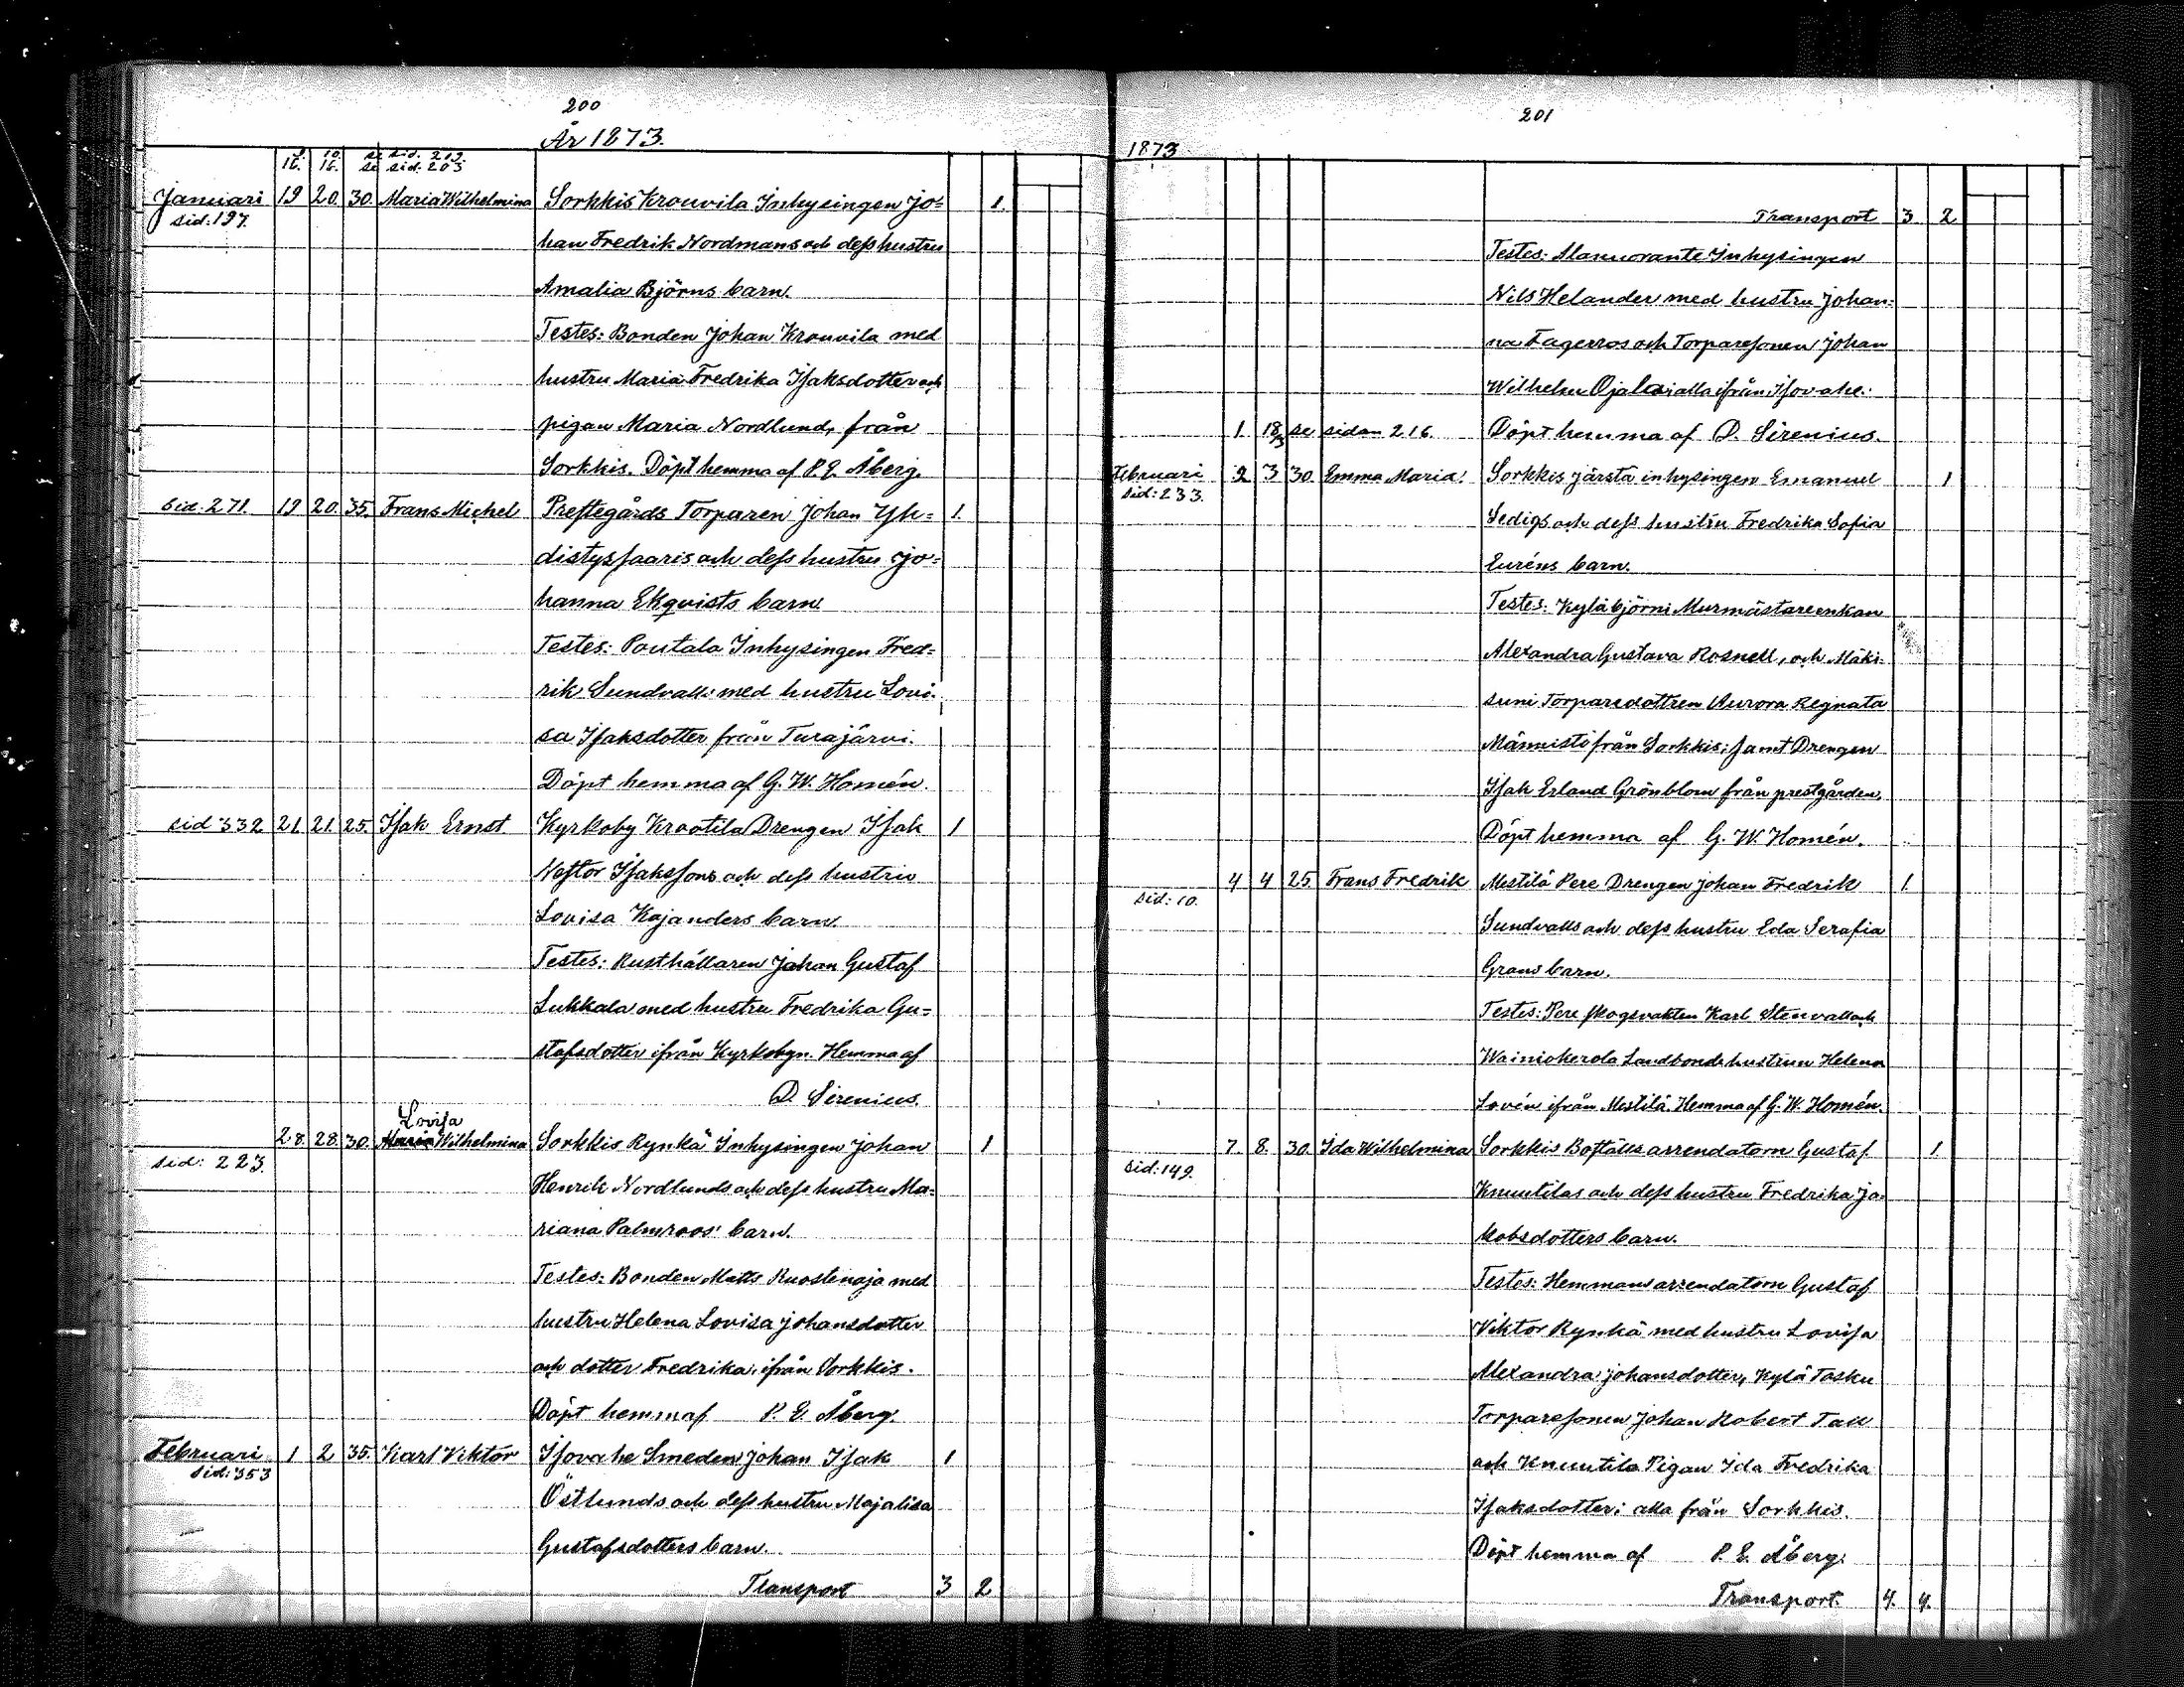 200
År 1873.
9. 10. se sid. 219.
16. 16. se sid. 203
Januari 19 20. 30. Maria Wilhelmina Sorkkis Krouvila Inhysingen Jo= 1.
sid: 197.
han Fredrik Nordmans och dess hustru
Amalia Björns barn.
Testes: Bonden Johan Krouvila med
hustru Maria Fredrika Isaksdotter och
pigan Maria Nordlund, från
Sorkkis. Döpt hemma af P. E. Åberg.
Sid. 271. 19 20. 35. Frans Michel Prestegårds Torparen Johan Yh= 1.
distyssaaris och dess hustru Jo=
hanna Ekqvists barn.
Testes: Pautala Inhysingen Fred=
rik Sundvall med hustru Lovi=
sa Isaksdotter från Turajärvi.
Döpt hemma af G. W. Homén.
sid 332 21 21. 25. Isak Ernst Kyrkoby Kraatila Drengen Isak 1
Nestor Isakssons och dess hustru
Lovisa Kajanders barn.
Testes: Rusthållaren Johan Gustaf
Lukkala med hustru Fredrika Gu=
stafsdotter ifrån Kyrkobyn. Hemma af
D. Sirenius.
Lovisa
28. 28. 30. Maria Wilhelmina Sorkkis Rynkä Inhysingen Johan 1
sid: 223.
Henrik Nordlunds och dess hustru Ma=
riana Palmroos' barn.
Testes: Bonden Matts Ruostenoja med
hustru Helena Lovisa Johansdotter
och dotter Fredrika, ifrån Sorkkis.
Döpt hemm af P. E. Åberg.
Februari 1 2 35. Karl Viktor Isovahe Smeden Johan Isak 1
sid: 353
Östlunds och dess hustru Majalisa
Gustafsdotters barn.
Transport 3 2
201
1873
Transport 3 2
Testes: Inhysingen
Nils Helander med hustru Johan=
na Fagerros och Torparesonen Johan
Wilhelm Ojala; alla ifrån Isovahe.
1 18/3 se sidan 216. Döpt hemma af D. Sirenius.
Februari 2 3 30. Emma Maria Sorkkis Järstä inhysingen Emanuel 1
sid: 233.
Sedigs och dess hustru Fredrika Sofia
Euréns barn.
Testes: Kyläbjörni Murmästareenkan
Alexandra Gustava Rosnell, och Mäki=
suni Torparedottren Aurora Regnata
Männistö från Sorkkis; samt Drengen
Isak Erland Grönblom från prestgården.
Döpt hemma af G. W. Homén.
4 4 25. Frans Fredrik Mestilä Pere Drengen Johan Fredrik 1.
sid: 10.
Sundvalls och dess hustru Eda Serafia
Grans barn.
Testes: Pere skogsvakten Karl Stenvall och
Wainiokerola Landbonde hustrun Helena
Lovén ifrån Mestilä. Hemma af G. W. Homén.
7. 8. 30. Ida Wilhelmina Sorkkis Boställs arrendatorn Gustaf 1
sid: 149.
Knuutilas och dess hustru Fredrika Ja=
kobsdotters barn.
Testes: Hemmans arrendatorn Gustaf
Viktor Rynkä med hustru Lovisa
Alexandra Johansdotter, Kylä Tasku
Torparesonen Johan Robert Tall
och Knuutila Pigan Ida Fredrika
Isaksdotter; alla från Sorkkis.
Döpt hemma af P. E. Åberg.
Transport. 4. 4.